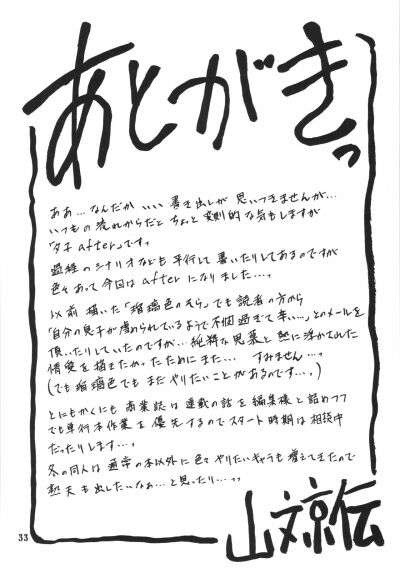 あとがきっ
ああ…なんだか いい 書き出しが 思いつきませんが…
いつもの 流れからだと ちょっと 変則的な気もしますが
「タネafter」です。
過程の シナリオなども 平行して 書いたりしてあるのですが
色々あって 今回は after になりました…。
以前 描いた「瑠璃色のそら」でも 読者の方から
「自分の息子が虐められているようで不憫過ぎて辛い…」とのメールを
頂いたりしていたのですが… 純粋な思慕と 熱に浮かされた
情愛を 描きたかったために また… すみません…。
(でも 瑠璃色でも まだやりたいことがあるのです…。)
とにもかくにも 商業誌は 連載の話を 編集様と 詰めつつ
でも単行本作業を 優先するので スタート時期は 相談中
だったりします…。
冬の同人は 通常の本以外に 色々やりたいキャラも 増えてきたので
も出したいなぁ…と思ったり…っっ
33
山文京伝